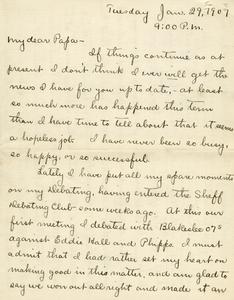 Tuesday Jan. 29, 1907
9:00 P.M.
My dear Papa-
If things continue as at
present I don't think I ever will get the
news I have for you up to date, - at least
so much more has happened this term
than I have time to tell about that it seems
a hopeless job. I have never been so busy,
so happy, or so successful.
Lately I have put all my spare moments
on my Debating, having entered the Sheff
Debating Club some weeks ago. At this our
first meeting I debated with Blakeslee 07S
against Eddie Hall and Phipps. I must
admit that I had rather set my heart on
making good in this matter, and am glad to
say we won out all right and made it an